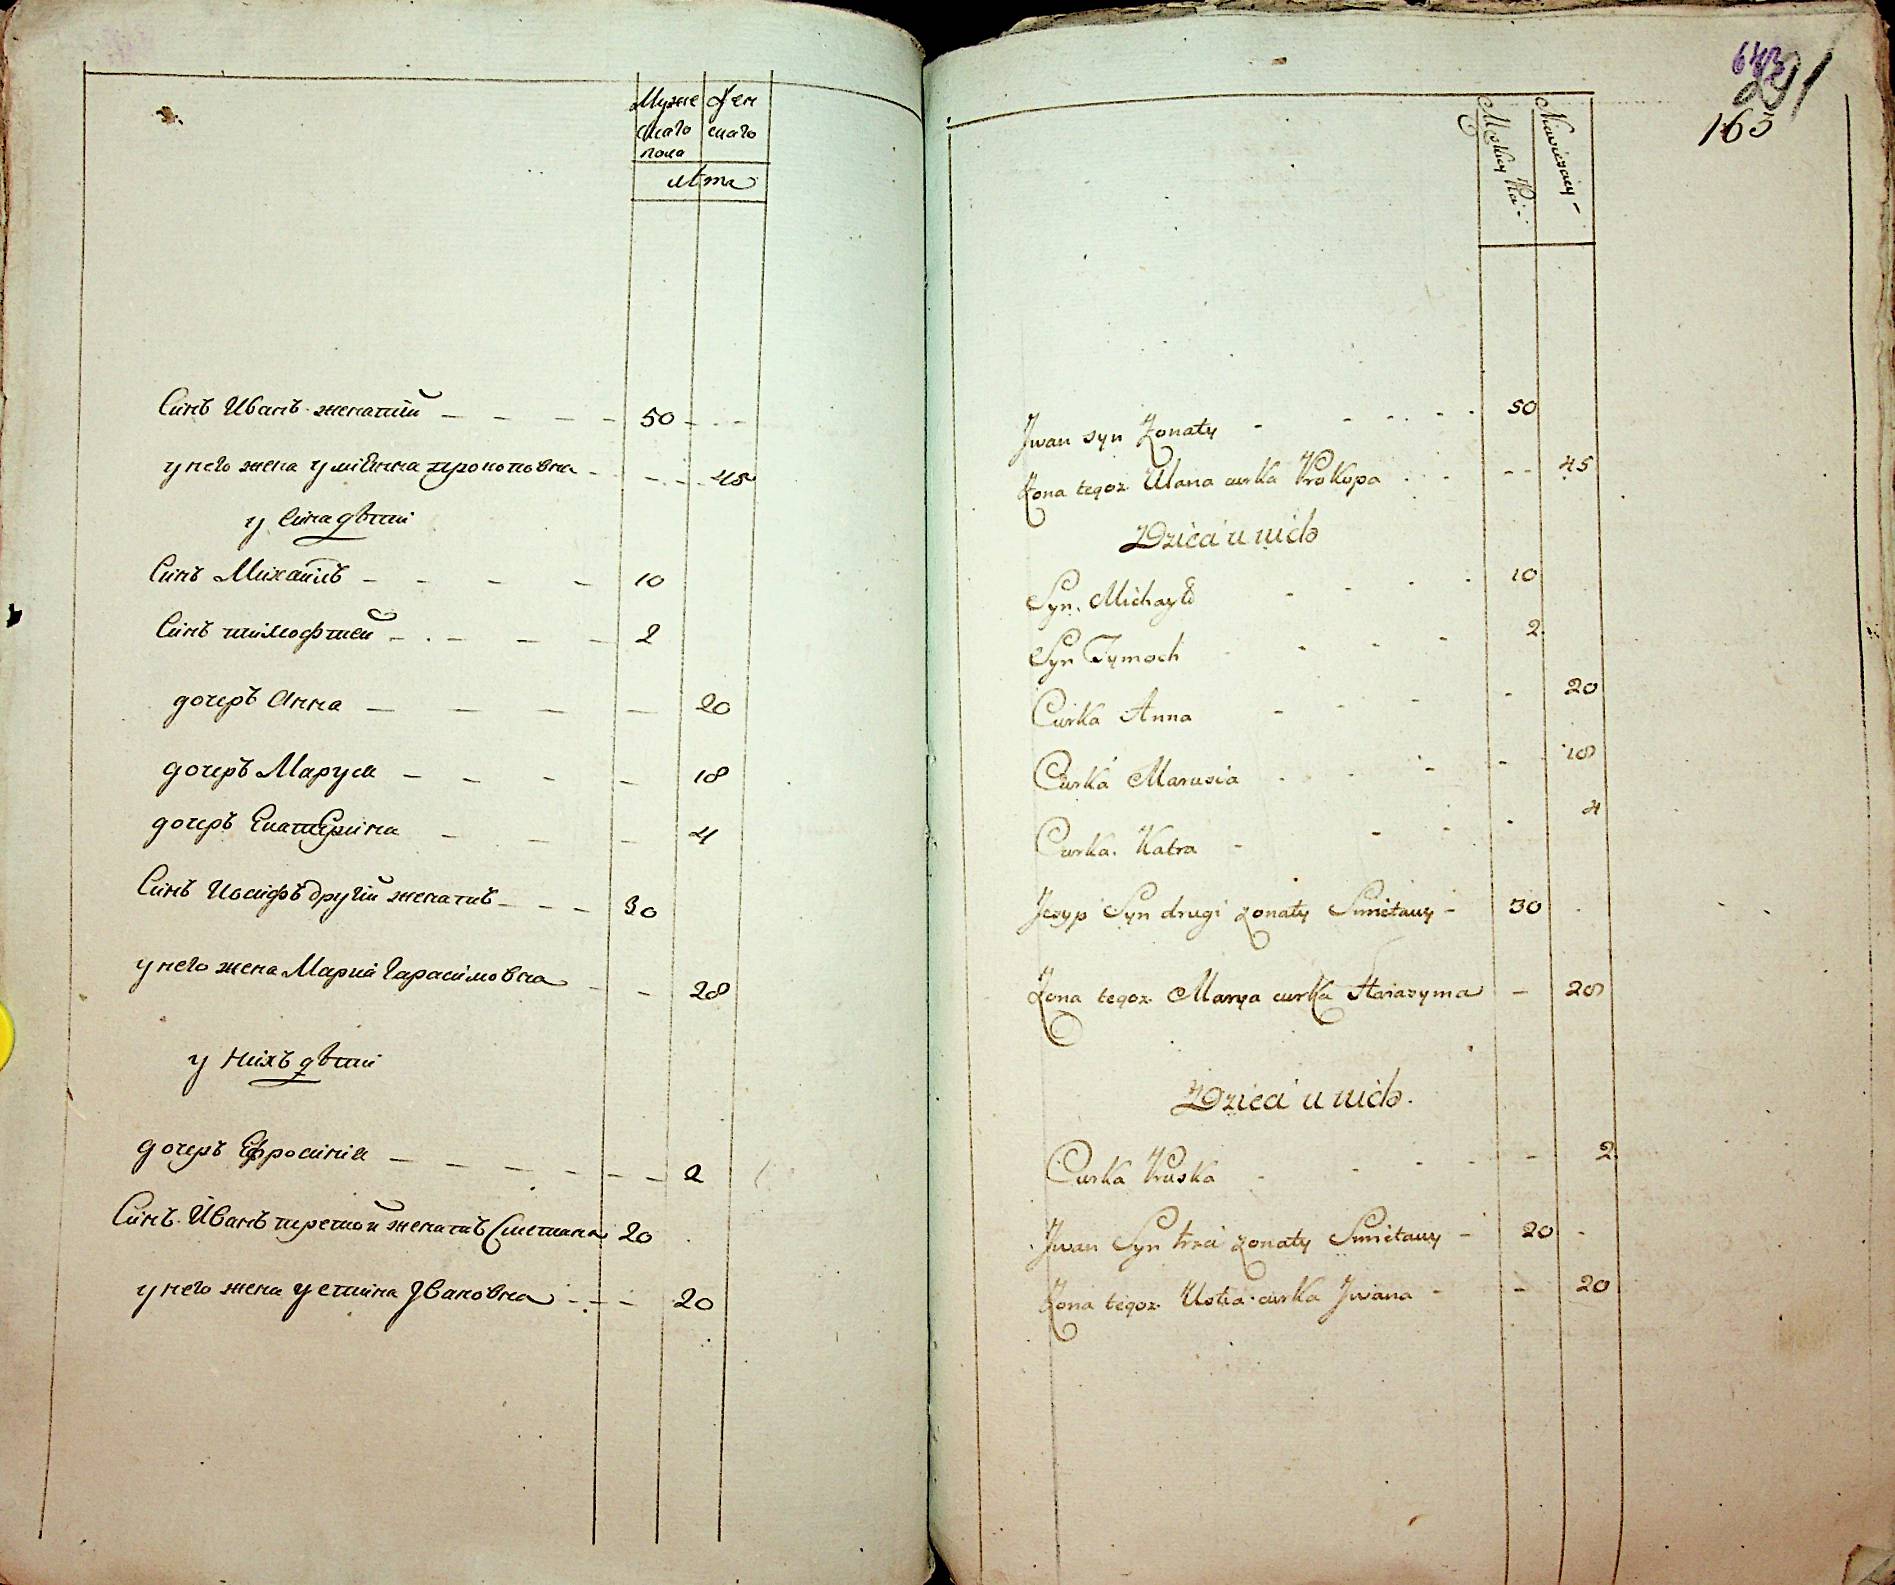 Мужескаго пола
Женскаго
лѣта
Синъ Иванъ женатий 50
у него жена улияна прокоповна 45
у Сина дѣти
Синъ Михаилъ 10
Синъ тимофтей 2
дочеръ Анна 20
дочеръ Маруся 18
дочеръ Екатерина 4
Синъ Иосифъ другий женатъ 30
у него жена Мария Гарасимовна 28
у нихъ дѣти
дочеръ Ефросиния 2
Синъ Иванъ третой женатъ Сметана 20
у него жена устина Ивановна 20
643
291
165
Męzkiey Płci
Niewieściey
Jwan syn żonaty 50
Żona tegoz Ulana curka Prokopa 45
Dzieci u nich
Syn Michayło 10
Syn Tymoch 2
Curka Anna 20
Curka Marusia 18
Curka Katra 4
Jozyp Syn drugi żonaty Smietany 30
Żona tegoz Marya curka Harasyma 28
Dzieci u nich
Curka Pruska 2
Jwan Syn trzci żonaty Smietany 20
Żona tegoz Ustia curka Jwana 20